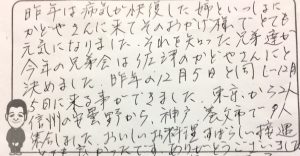 昨年は病気が快復した姉といっしょに
かどやさんに来てそのおかげ様でとても
元気になりました。それを知った兄弟達が
今年の兄弟会は佐津のかどやさんにと
決めました。昨年の12月5日と同じ12月
5日に来る事ができました。東京から2人
信州の安曇野から、神戸、養父市で8人
来合しました。おいしいお料理すばらしい接遇
とても良かったですありがとうございました